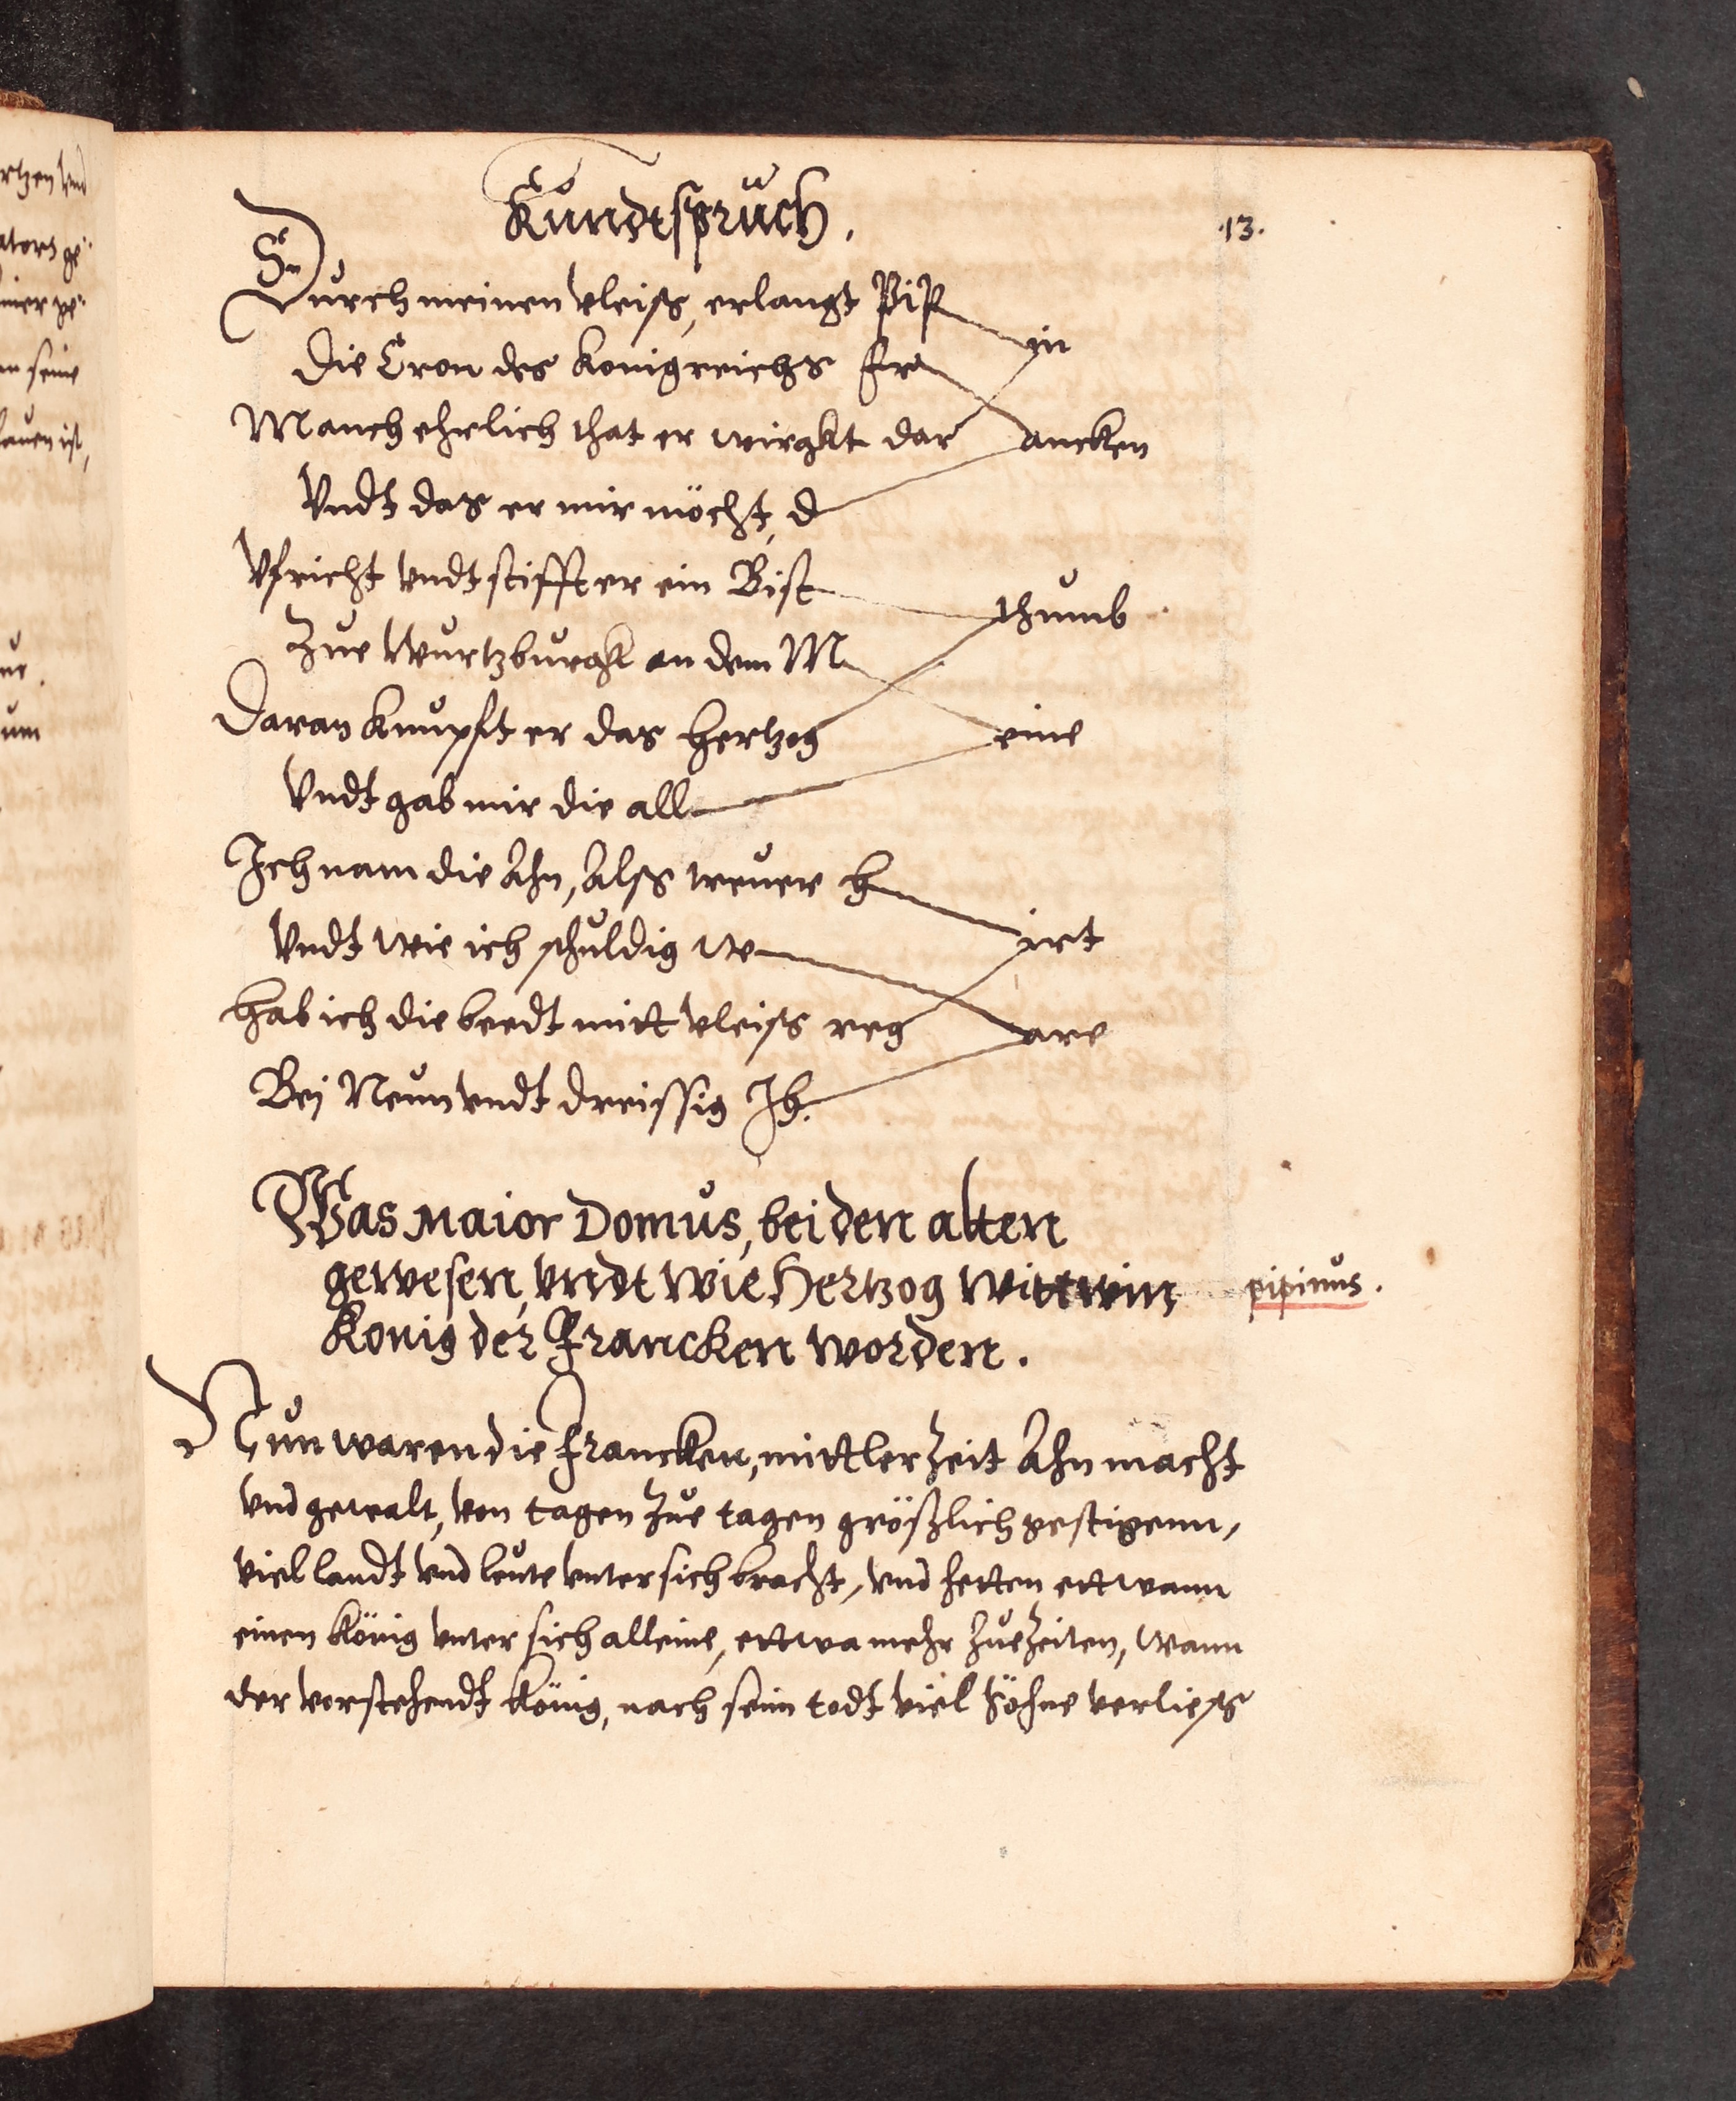 Kundtspruch.
.13.
Durch meinen vleiß, erlangt Pip
in
Die Cron des Konigreichs Fr
Manch ehrlich that er wirgkt dar
ancken
Vndt das er mir möcht, d
Vfricht vndt stifft er ein Bist
thumb
Zue Wurtzburgk an dem M
Daran knupft er das Hertzog
eine
Vndt gab mir die all
Ich nam die Ahn, Alß treuer h
Vndt wie ich schuldig w
irt
Hab ich die beedt mitt vleiß reg
are
Bej Neun vndt dreissig Jh.
Was Maior Domus, bei den alten
gewesen, vndt wie Hertzog Wittwin
pipinus.
Konig der Francken worden.
Nun waren die Francken, mittler Zeit Ahn macht
vnd gewalt, von tagen zue tagen größlich gestigenn,
viel landt vnd leute vnter sich bracht, vnd hetten ettwann
einen König vnter sich alleine, ettwa mehr zue Zeiten, Wann
der vorstehendt König, nach seim todt viel Söhne verließ
rtzen vnd
ators ge:
en seine
auen ist,
ue.
um